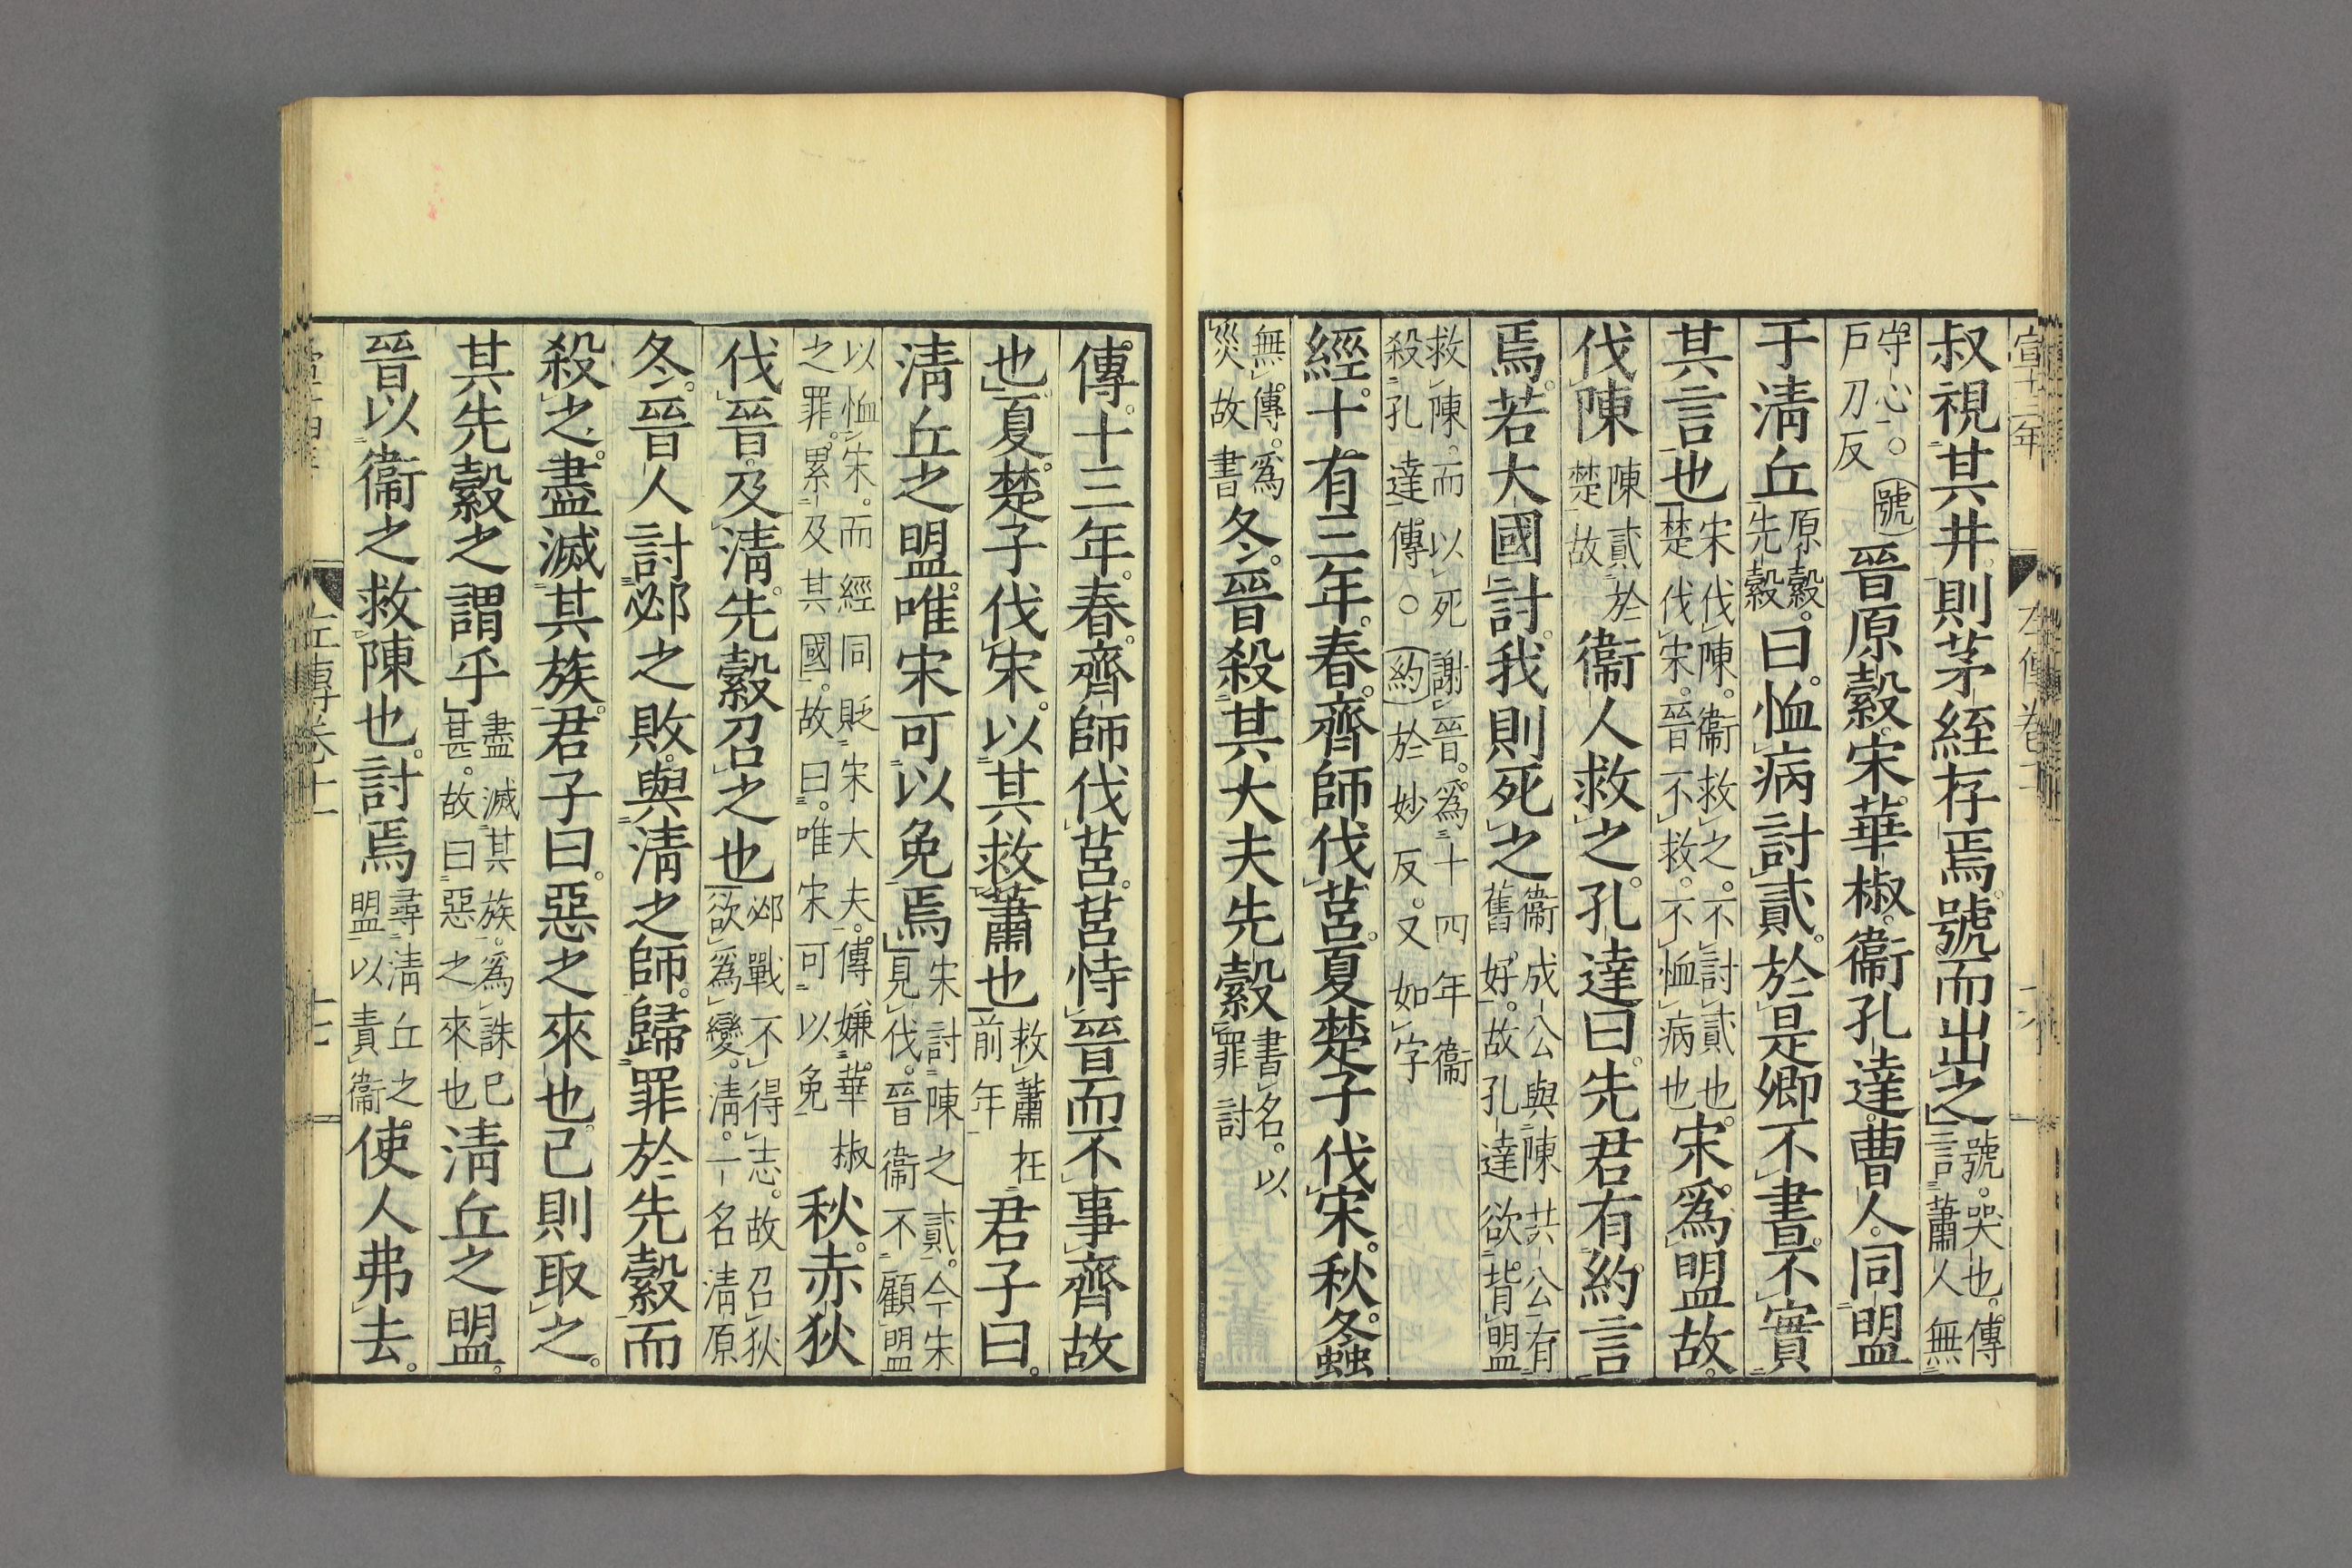 叔視其井則茅絰存焉。號而出之號。哭也。傳言蕭人無
守心。○號戶刀反晉原縠。宋華椒。衞孔達。曹人。同盟
于淸丘原縠。先縠曰。恤病討貳。於是卿不書。不實
其言也宋伐陳。衞救之。不討貳也。楚伐宋。晉不救。不恤病也宋爲盟故。
伐陳陳貳於楚故衞人救之。孔達曰。先君有約言
焉。若大國討。我則死之衞成公與陳共公有舊好。故孔達欲背盟
救陳。而以死謝晉。爲十四年衞殺孔達傳。○約於妙反。又如字
經。十有三年。春。齊師伐莒。夏楚子伐宋。秋。冬螽
無傳。爲災故書冬。晉殺其大夫先縠書名。以罪討
傳。十三年。春。齊師伐莒。莒恃晉而不事齊故
也。夏。楚子伐宋。以其救蕭也救蕭在前年君子曰。
淸丘之盟。唯宋可以免焉宋討陳之貳。今宋見伐。晉衞不顧盟
以恤宋。而經同貶宋大夫。傳嫌華椒之罪。累及其國。故曰。唯宋可以免秋。赤狄
伐晉。及淸。先縠召之也邲戰不得志。故召狄欲爲變。淸。一名淸原
冬。晉人討邲之敗。與淸之師。歸罪於先縠而
殺之。盡滅其族。君子曰。惡之來也。已則取之。
其先縠之謂乎盡滅其族。爲誅已甚。故曰惡之來也淸丘之盟。
晉以衞之救陳也。討焉尋淸丘之盟以責衞使人弗去。